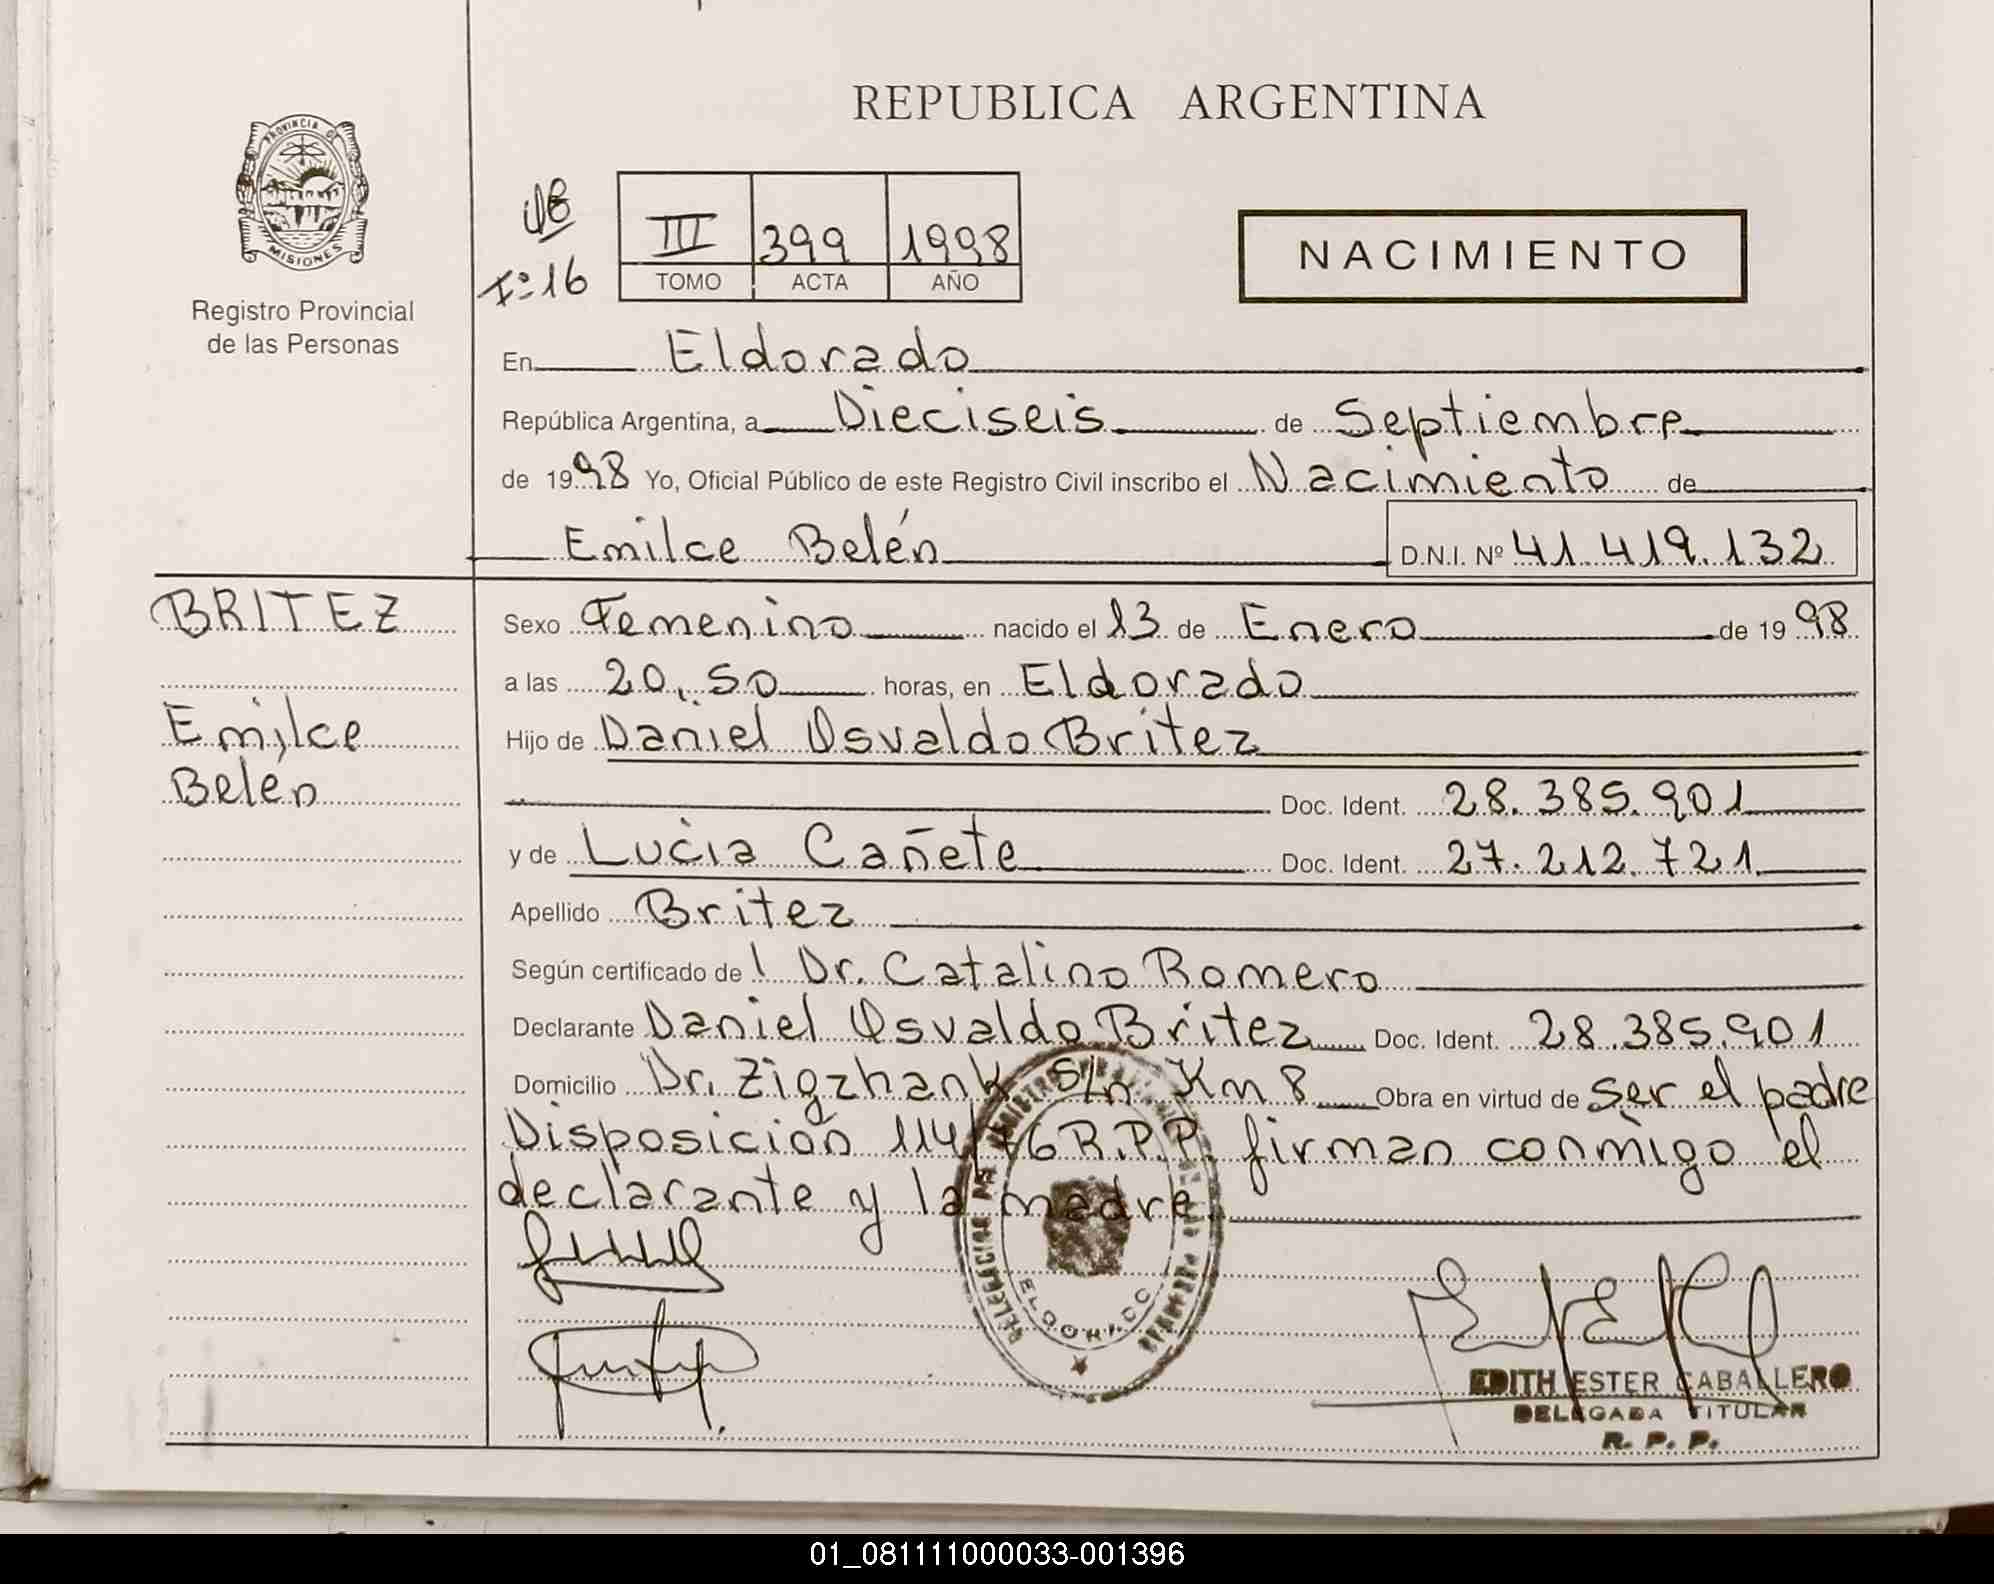 REPUBLICA ARGENTINA
PROVINCIA DE
MISIONES
Registro Provincial
de las Personas
Fº 16
III 399 1998
TOMO ACTA AÑO
NACIMIENTO
En Eldorado
República Argentina, a Dieciseis de Septiembre
de 1998 Yo, Oficial Público de este Registro Civil inscribo el Nacimiento de
Emilce Belén D.N.I. Nº 41.419.132
BRITEZ
Emilce
Belén
Sexo Femenino nacido el 13 de Enero de 1998
a las 20,50 horas, en Eldorado
Hijo de Daniel Osvaldo Britez
Doc. Ident. 28.385.901
y de Lucia Cañete Doc. Ident. 27.212.721
Apellido Britez
Según certificado de l Dr. Catalino Romero
Declarante Daniel Osvaldo Britez Doc. Ident. 28.385.901
Domicilio Dr. Zigzhank S/n Km 8 Obra en virtud de ser el padre
Disposición 114/76 R.P.P. firman conmigo el
declarante y la madre.
ELDORADO
EDITH ESTER CABALLERO
DELEGADA TITULAR
R. P. P.
01_081111000033-001396